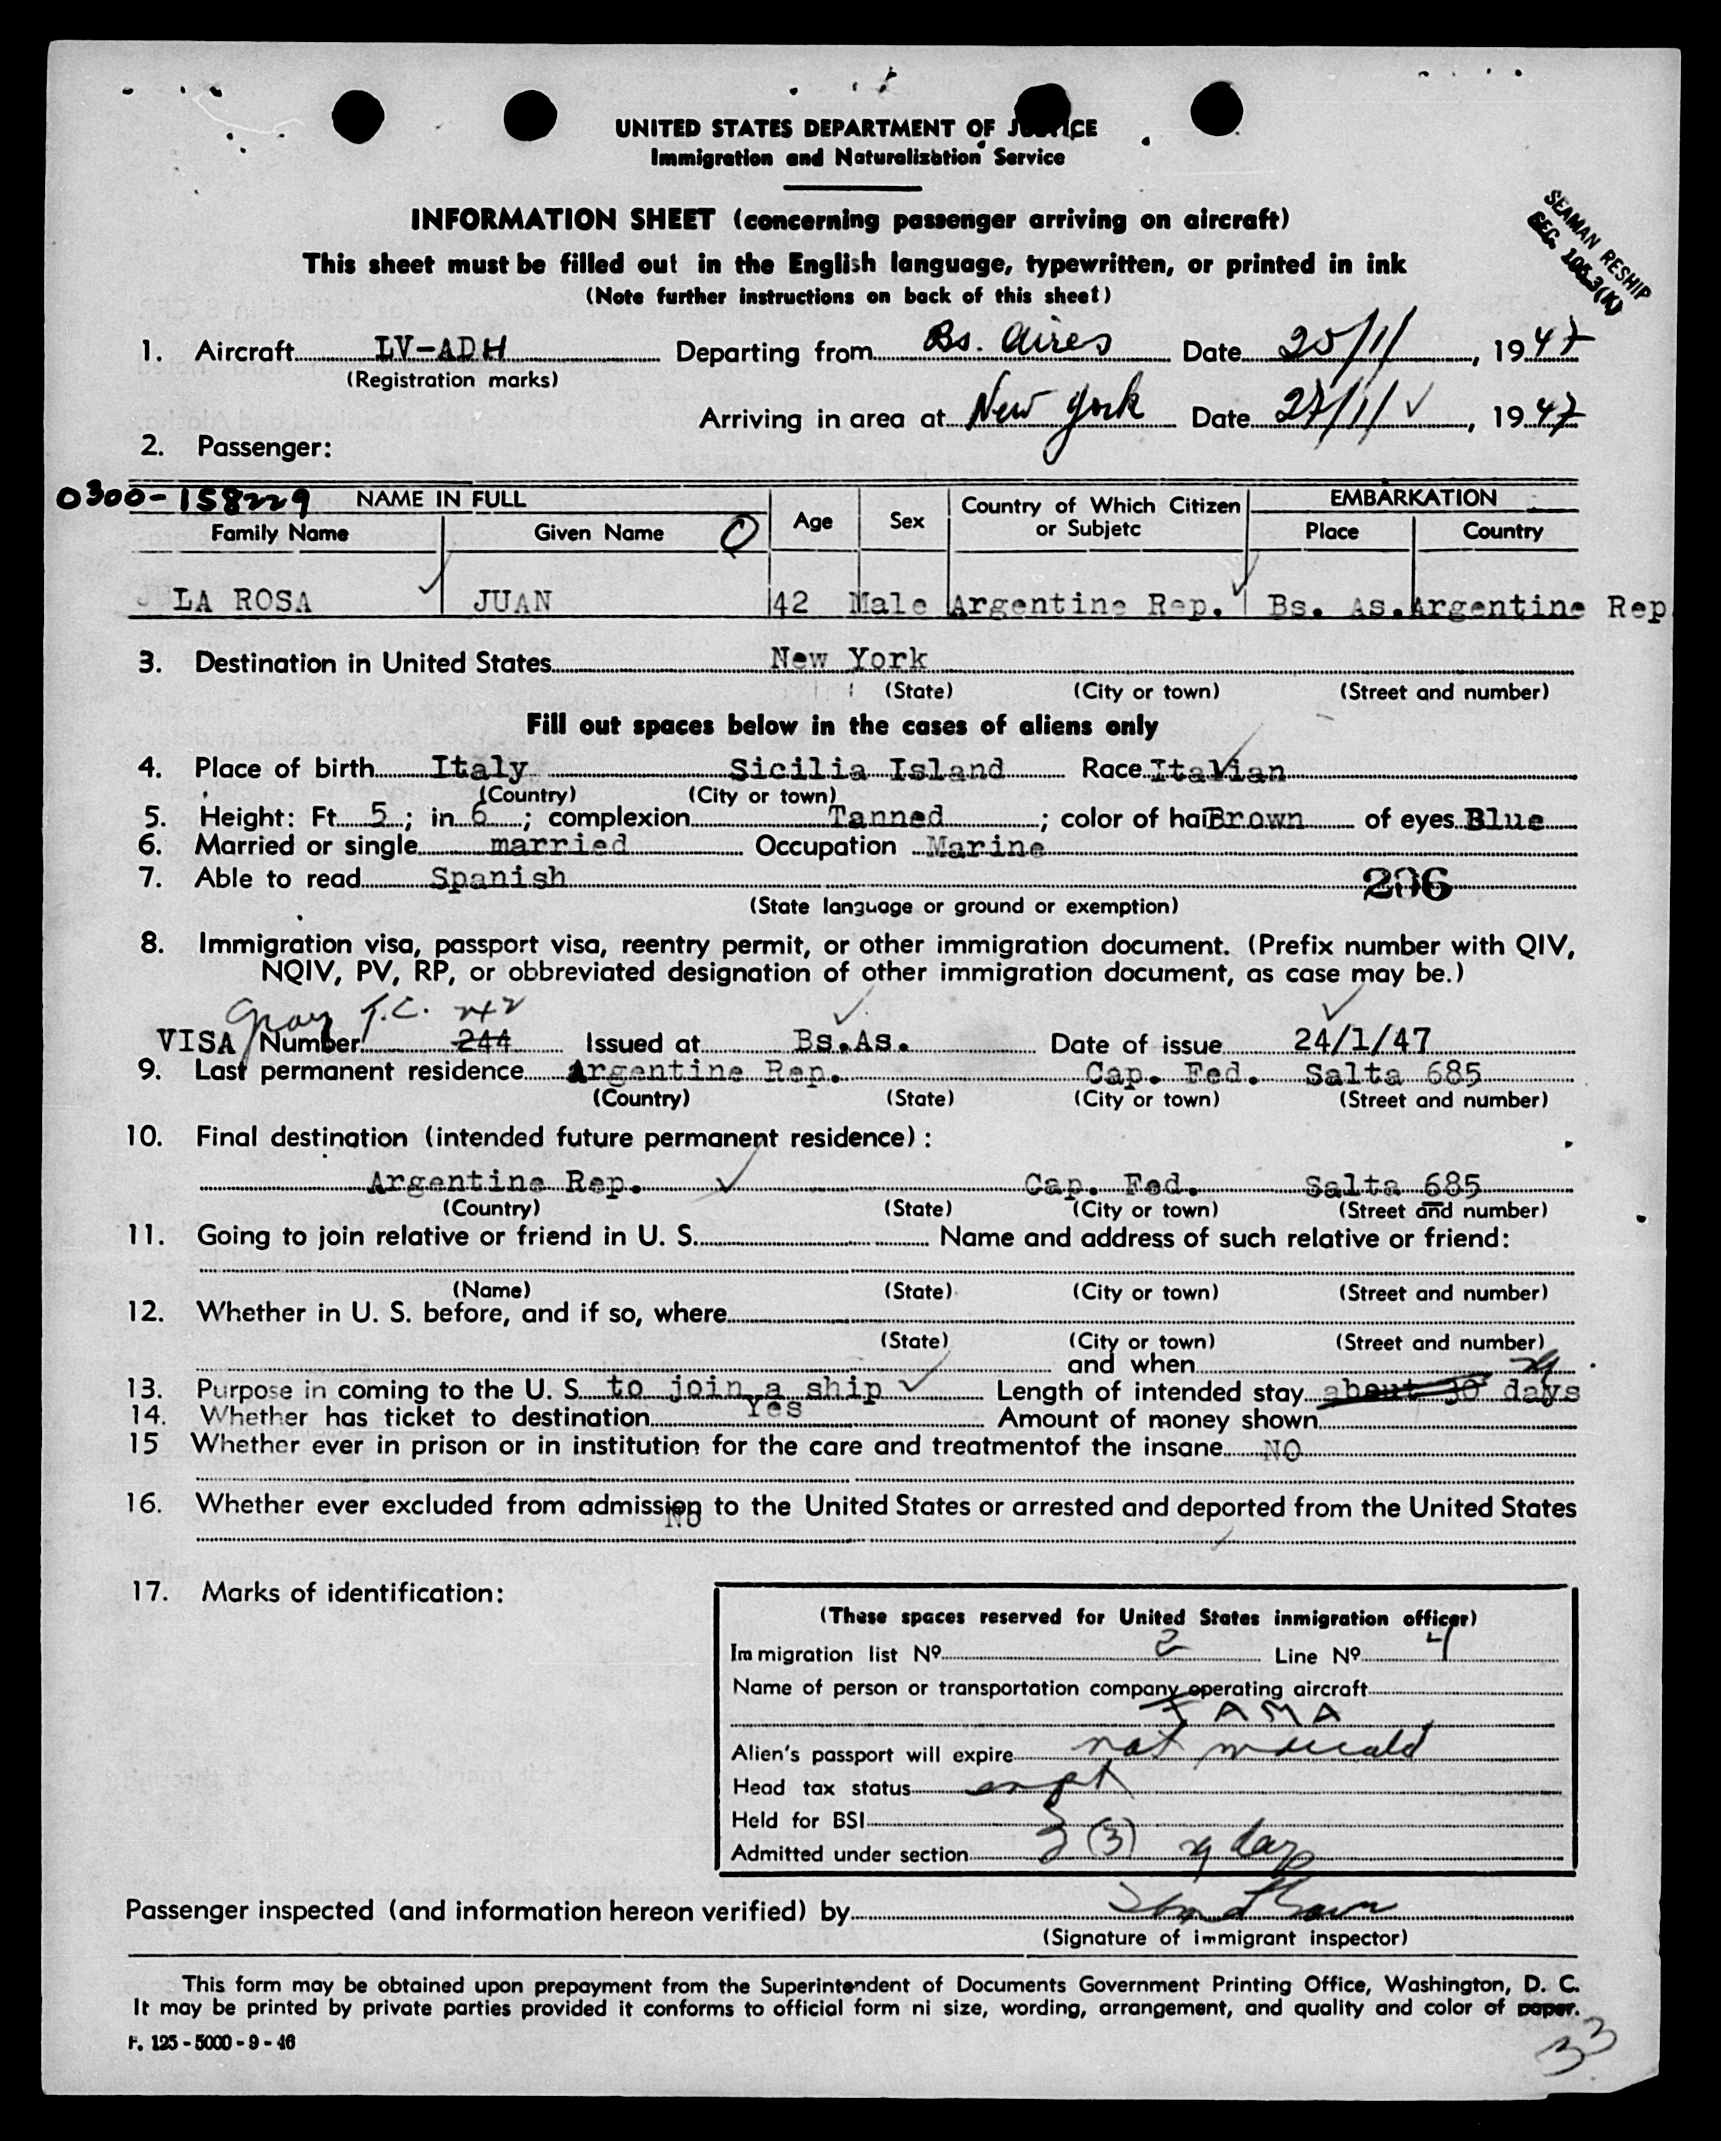 UNITED STATES DEPARTMENT OF JUSTICE
Immigration and Naturalization Service
INFORMATION SHEET (concerning passenger arriving on aircraft)
SEAMAN RESHIP
SEC. 105.3(K)
This sheet must be filled out in the English language, typewritten, or printed in ink
(Note further instructions on back of this sheet)
1. Aircraft LV-ADH Departing from Bs. Aires Date 25/1/, 1947
(Registration marks)
Arriving in area at New York Date 27/1/ ✓, 1947
2. Passenger:
0300-158229 NAME IN FULL Age Sex Country of Which Citizen or Subjetc EMBARKATION
Family Name Given Name Place Country
LA ROSA JUAN 42 Male Argentine Rep. Bs. As. Argentine Rep
3. Destination in United States New York
(State) (City or town) (Street and number)
Fill out spaces below in the cases of aliens only
4. Place of birth Italy Sicilia Island Race Italian
(Country) (City or town)
5. Height: Ft. 5; in. 6; complexion Tanned; color of hai Brown of eyes Blue
6. Married or single married Occupation Marine
7. Able to read Spanish 206
(State language or ground or exemption)
8. Immigration visa, passport visa, reentry permit, or other immigration document. (Prefix number with QIV,
NQIV, PV, RP, or obbreviated designation of other immigration document, as case may be.)
Gray T.C. 242
VISA Number 244 Issued at Bs.As. Date of issue 24/1/47
9. Last permanent residence Argentine Rep. Cap. Fed. Salta 685
(Country) (State) (City or town) (Street and number)
10. Final destination (intended future permanent residence):
Argentine Rep. Cap. Fed. Salta 685
(Country) (State) (City or town) (Street and number)
11. Going to join relative or friend in U. S. Name and address of such relative or friend:
(Name) (State) (City or town) (Street and number)
12. Whether in U. S. before, and if so, where
(State) (City or town) (Street and number)
and when
13. Purpose in coming to the U. S. to join a ship Length of intended stay about 30 29 days
14. Whether has ticket to destination Yes Amount of money shown
15 Whether ever in prison or in institution for the care and treatmentof the insane NO
16. Whether ever excluded from admission to the United States or arrested and deported from the United States
No
17. Marks of identification:
(These spaces reserved for United States inmigration officer)
Immigration list Nº 2 Line Nº 4
Name of person or transportation company operating aircraft
FAMA
Alien's passport will expire not
Head tax status
Held for BSI
Admitted under section 3 (3) 29 days
Passenger inspected (and information hereon verified) by
(Signature of immigrant inspector)
This form may be obtained upon prepayment from the Superintendent of Documents Government Printing Office, Washington, D. C.
It may be printed by private parties provided it conforms to official form ni size, wording, arrangement, and quality and color of paper.
F. 125 - 5000 - 9 - 46
33